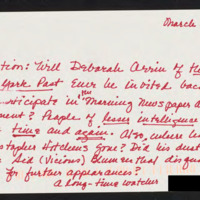 March
tion: Will Deborah Orrin of the
York Post Ever be invited bac
rticipate in the "Morning Newspaper a
ment? People of lesser intelligence
time and again. Also, where is
stopher Hitchens gone? Did his dust
Sid (Vicious) Blumenthal disqua
for further appearances?
a long-time watcher